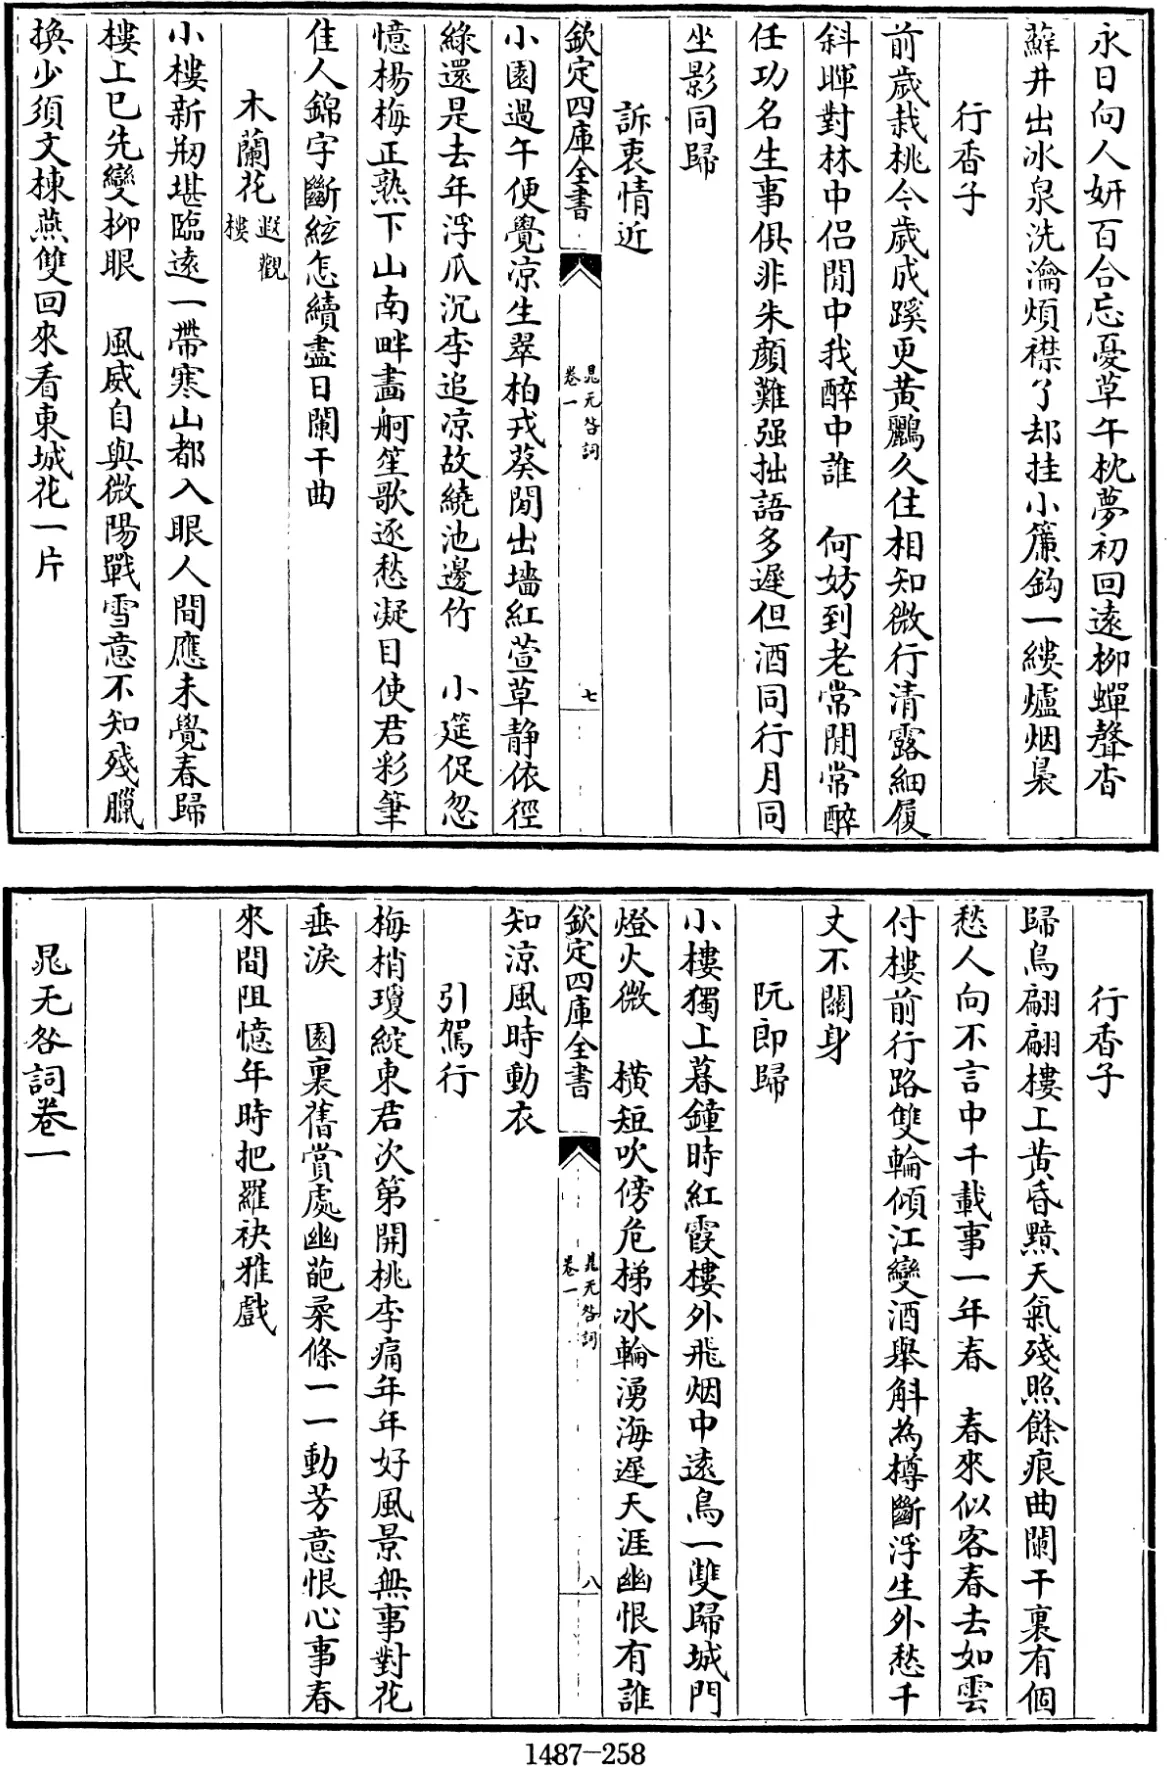 永日向人妍百合忘憂草午枕夢初回遠柳蟬聲杳
蘚井出冰泉洗瀹煩襟了却挂小簾鈎一縷爐烟裊
行香子
前歲栽桃今歲成蹊更黃鸝久住相知微行清露細履
斜暉對林中侶閒中我醉中誰　何妨到老常閒常醉
任功名生事俱非朱顏難强拙語多遲但酒同行月同
坐影同歸
訴衷情近
欽定四庫全書
晁无咎詞
卷一
七
小園過午便覺凉生翠柏戎葵閒出墻紅萱草靜依徑
綠還是去年浮瓜沉李追凉故繞池邊竹　小筵促忽
憶楊梅正熟下山南畔畵舸笙歌逐愁凝目使君彩筆
佳人錦字斷絃怎續盡日闌干曲
木蘭花遐觀樓
小樓新刱堪臨遠一帶寒山都入眼人間應未覺春歸
樓上已先變柳眼　風威自與微陽戰雪意不知殘臘
換少須文棟燕雙回來看東城花一片
行香子
歸鳥翩翩樓上黃昏黯天氣殘照餘痕曲闌干裏有個
愁人向不言中千載事一年春　春來似客春去如雲
付樓前行路雙輪傾江變酒舉斛為樽斷浮生外愁千
丈不關身
阮郎歸
小樓獨上暮鐘時紅霞樓外飛烟中遠鳥一雙歸城門
燈火微　橫短吹傍危梯冰輪湧海遲天涯幽恨有誰
欽定四庫全書
晁无咎詞
卷一
八
知涼風時動衣
引駕行
梅梢瓊綻東君次第開桃李痛年年好風景無事對花
垂淚　園裏舊賞處幽葩柔條一一動芳意恨心事春
來間阻憶年時把羅袂雅戲
晁无咎詞卷一
1487—258